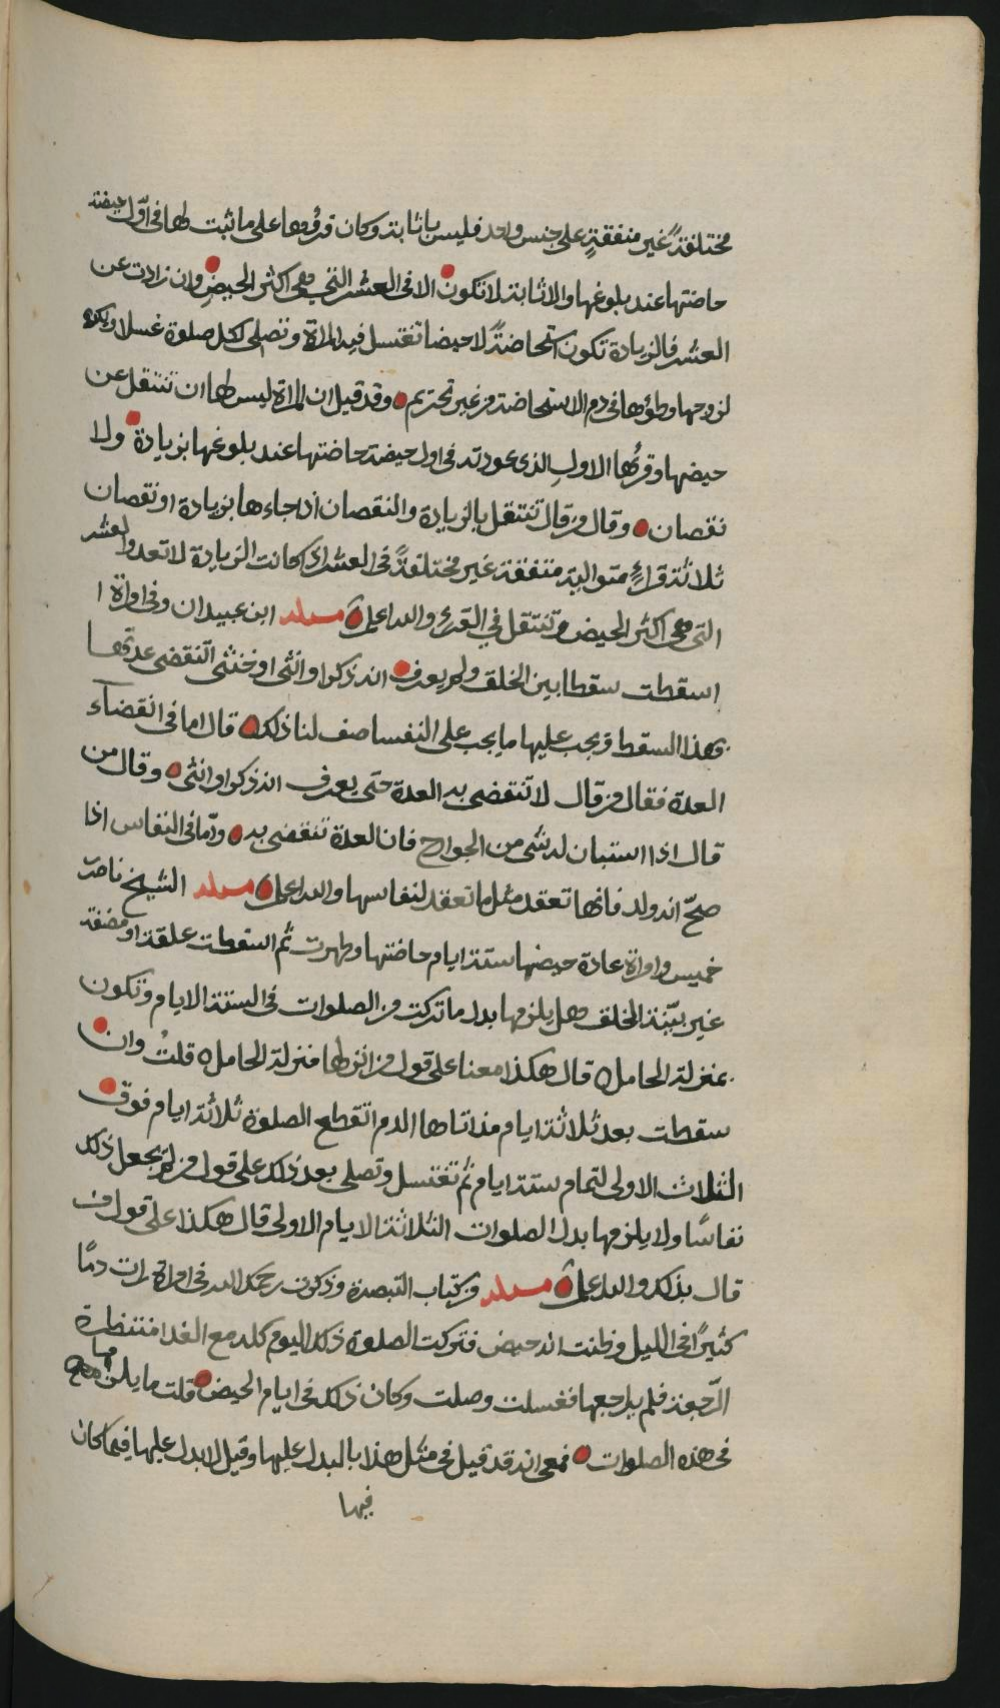 مختلفةً غير متفقةٍ على جنس واحد فليس باثابة وكان قرؤها على ما ثبت لها في اوّل حيضة
حاضتها عند بلوغها والاثابة لا تكون الا في العشر التي هي اكثر الحيض وان زادت عن
العشر فالزيادة تكون استحاضةً لا حيضا تغتسل فيه المراة وتصلي لكل صلوة غسلا ويكره
لزوجها وطؤها في دم الاستحاضة من غير تحريم وقد قيل ان المراة ليس لها ان تنتقل عن
حيضها وقرئها الاول الذي عودته في اول حيضة حاضتها عند بلوغها بزيادة ولا
نقصان وقال من قال تنتقل بالزيادة والنقصان اذا جاءها بزيادة او نقصان
ثلاثة قراءٍ متوالية متفقة غير مختلفةً في العشر اذا كانت الزيادة لا تعدوا العشر
التي هي اكثر الحيض وتنتقل في القرء والله اعلم مسئلة ابن عبيدان وفي امراة ا
اسقطت سقطا بين الخلق ولم يعرف انه ذكرا او انثى او خنثى اتنقضي عدتها
بهذا السقط ويجب عليها ما يجب على النفسا صف لنا ذلك قال اما في انقضاء
العدة فقال من قال لا تنقضي به العدة حتى يعرف انه ذكرا او انثى وقال من
قال اذا استبان له شي من الجوارح فان العدة تنقضي به وامّا في النفاس اذا
صحّ انه ولد فانها تعقد مثل ما تعقد لنفاسها والله اعلم مسئلة الشيخ ناصر بن
خميس وامراة عادة حيضها ستة ايام حاضتها وطهرت ثم اسقطت علقة او مضغة
غير بيّنة الخلق هل يلزمها بدل ما تركت من الصلوات في الستة الايام وتكون
بمنزلة الحامل قال هكذا معنا على قول من انزلها منزلة الحامل قلتُ وان
سقطت بعد ثلاثة ايام مذ اتاها الدم اتقطع الصلوة ثلاثة ايام فوق
الثلاث الاولى لتمام ستة ايام ثم تغتسل وتصلي بعد ذلك على قول من لم يجعل ذلك
نفاسًا ولا يلزمها بدل الصلوات الثلاثة الايام الاولى قال هكذا على قول من
قال بذلك والله اعلم مسئلة من كتاب التبصرة وذكرت رحمك الله في امراة رات دمًا
كثيرًا في الليل وظنت انه حيض فتركت الصلوة ذلك اليوم كله مع الغد انتظرة
الرّجعة فلم يراجعها فغسلت وصلت وكان ذلك في ايام الحيض قلت ما يلزمها
في هذه الصلوات فمعي انه قد قيل في مثل هذا بالبدل عليها وقيل لا بدل عليها فيما كان
فيها